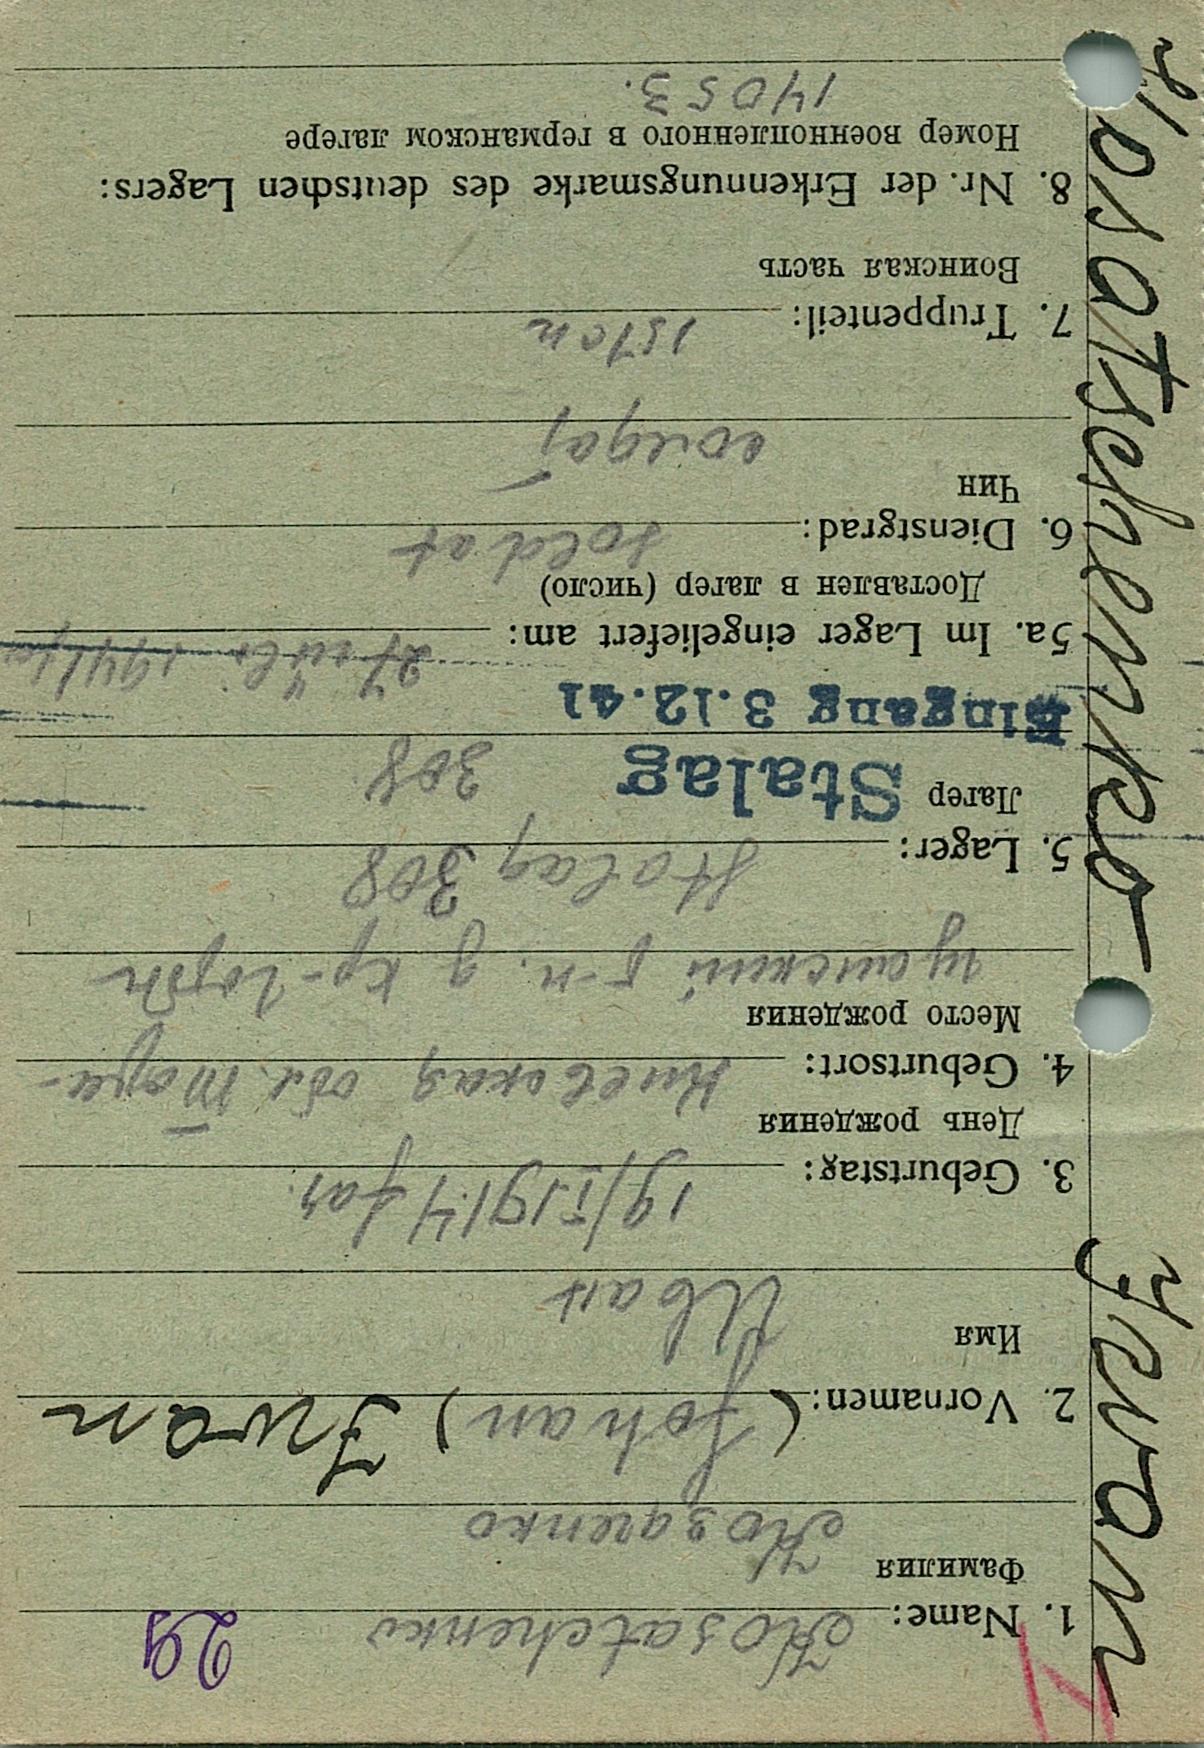 Kosatschenko Iwan
29
1. Name: Kosatchenko
Фамилия
Козаченко
2. Vornamen: (Johan) Iwan
Имя
Иван
3. Geburtstag: 19/I 1914 Jar
День рождения
4. Geburtsort: Киевская обл. Тара-
Место рождения
щанский р-н. д
5. Lager: Stalag 308
Лагер Stalag 308
Eingang 3.12.41
5a. Im Lager eingeliefert am: 27 1941
Доставлен в лагер (число)
6. Dienstgrad: soldat
Чин
солдат
7. Truppenteil:
Воинская часть
8. Nr. der Erkennungsmarke des deutschen Lagers:
Номер военнопленного в германском лагере
14053.